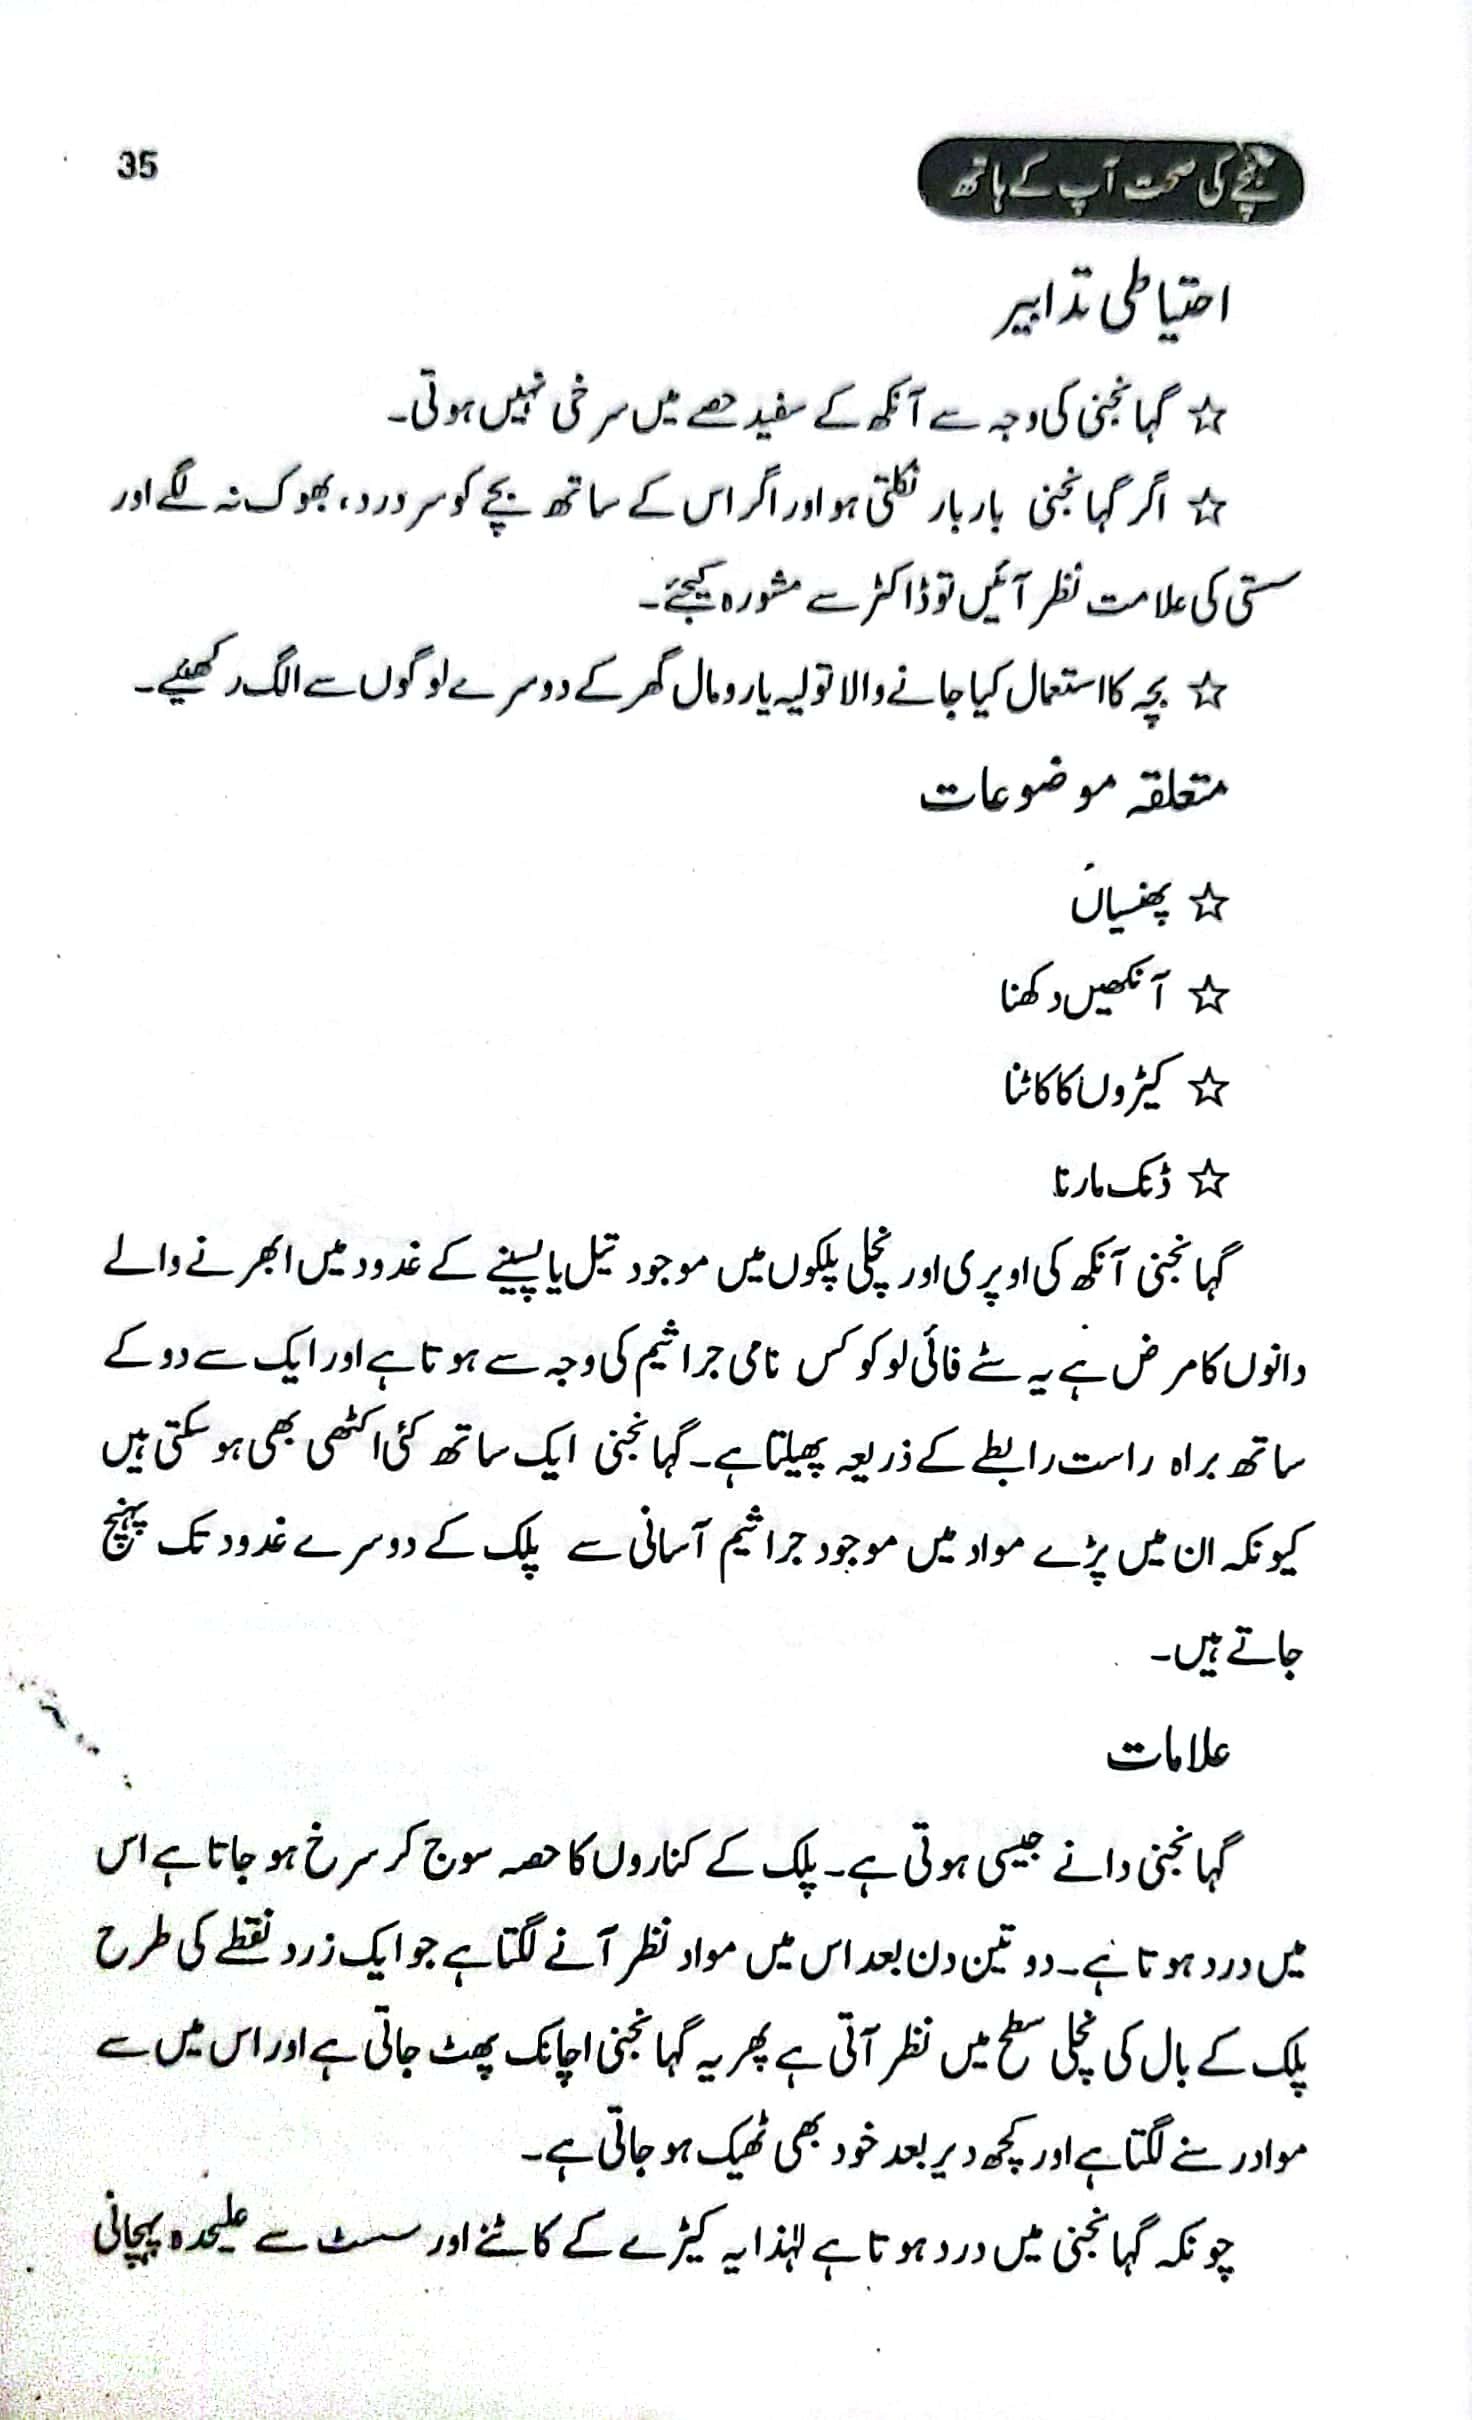 بچے کی صحت آپ کے ہاتھ
35
احتیاطی تدابیر
☆ گہانجنی کی وجہ سے آنکھ کے سفید حصے میں سرخی نہیں ہوتی۔
☆ اگر گہانجنی بار بار نکلتی ہو اور اگر اس کے ساتھ بچے کو سر درد، بھوک نہ لگے اور
سستی کی علامت نظر آئیں تو ڈاکٹر سے مشورہ کیجئے۔
☆ بچہ کا استعمال کیا جانے والا تولیہ یا رومال گھر کے دوسرے لوگوں سے الگ رکھیئے۔
متعلقہ موضوعات
☆ پھنسیاں
☆ آنکھیں دکھنا
☆ کیڑوں کا کاٹنا
☆ ڈنک مارنا
گہانجنی آنکھ کی اوپری اور نچلی پلکوں میں موجود تیل یا پسینے کے غدود میں ابھرنے والے
دانوں کا مرض ہے یہ سٹے فائی لوکوکس نامی جراثیم کی وجہ سے ہوتا ہے اور ایک سے دو کے
ساتھ براہ راست رابطے کے ذریعہ پھیلتا ہے۔ گہانجنی ایک ساتھ کئی اکٹھی بھی ہو سکتی ہیں
کیونکہ ان میں پڑے مواد میں موجود جراثیم آسانی سے پلک کے دوسرے غدود تک پہنچ
جاتے ہیں۔
علامات
گہانجنی دانے جیسی ہوتی ہے۔ پلک کے کناروں کا حصہ سوج کر سرخ ہو جاتا ہے اس
میں درد ہوتا ہے۔ دو تین دن بعد اس میں مواد نظر آنے لگتا ہے جو ایک زرد نقطے کی طرح
پلک کے بال کی نچلی سطح میں نظر آتی ہے پھر یہ گہانجنی اچانک پھٹ جاتی ہے اور اس میں سے
مواد رسنے لگتا ہے اور کچھ دیر بعد خود بھی ٹھیک ہو جاتی ہے۔
چونکہ گہانجنی میں درد ہوتا ہے لہٰذا یہ کیڑے کے کاٹنے اور سسٹ سے علیحدہ پہچانی